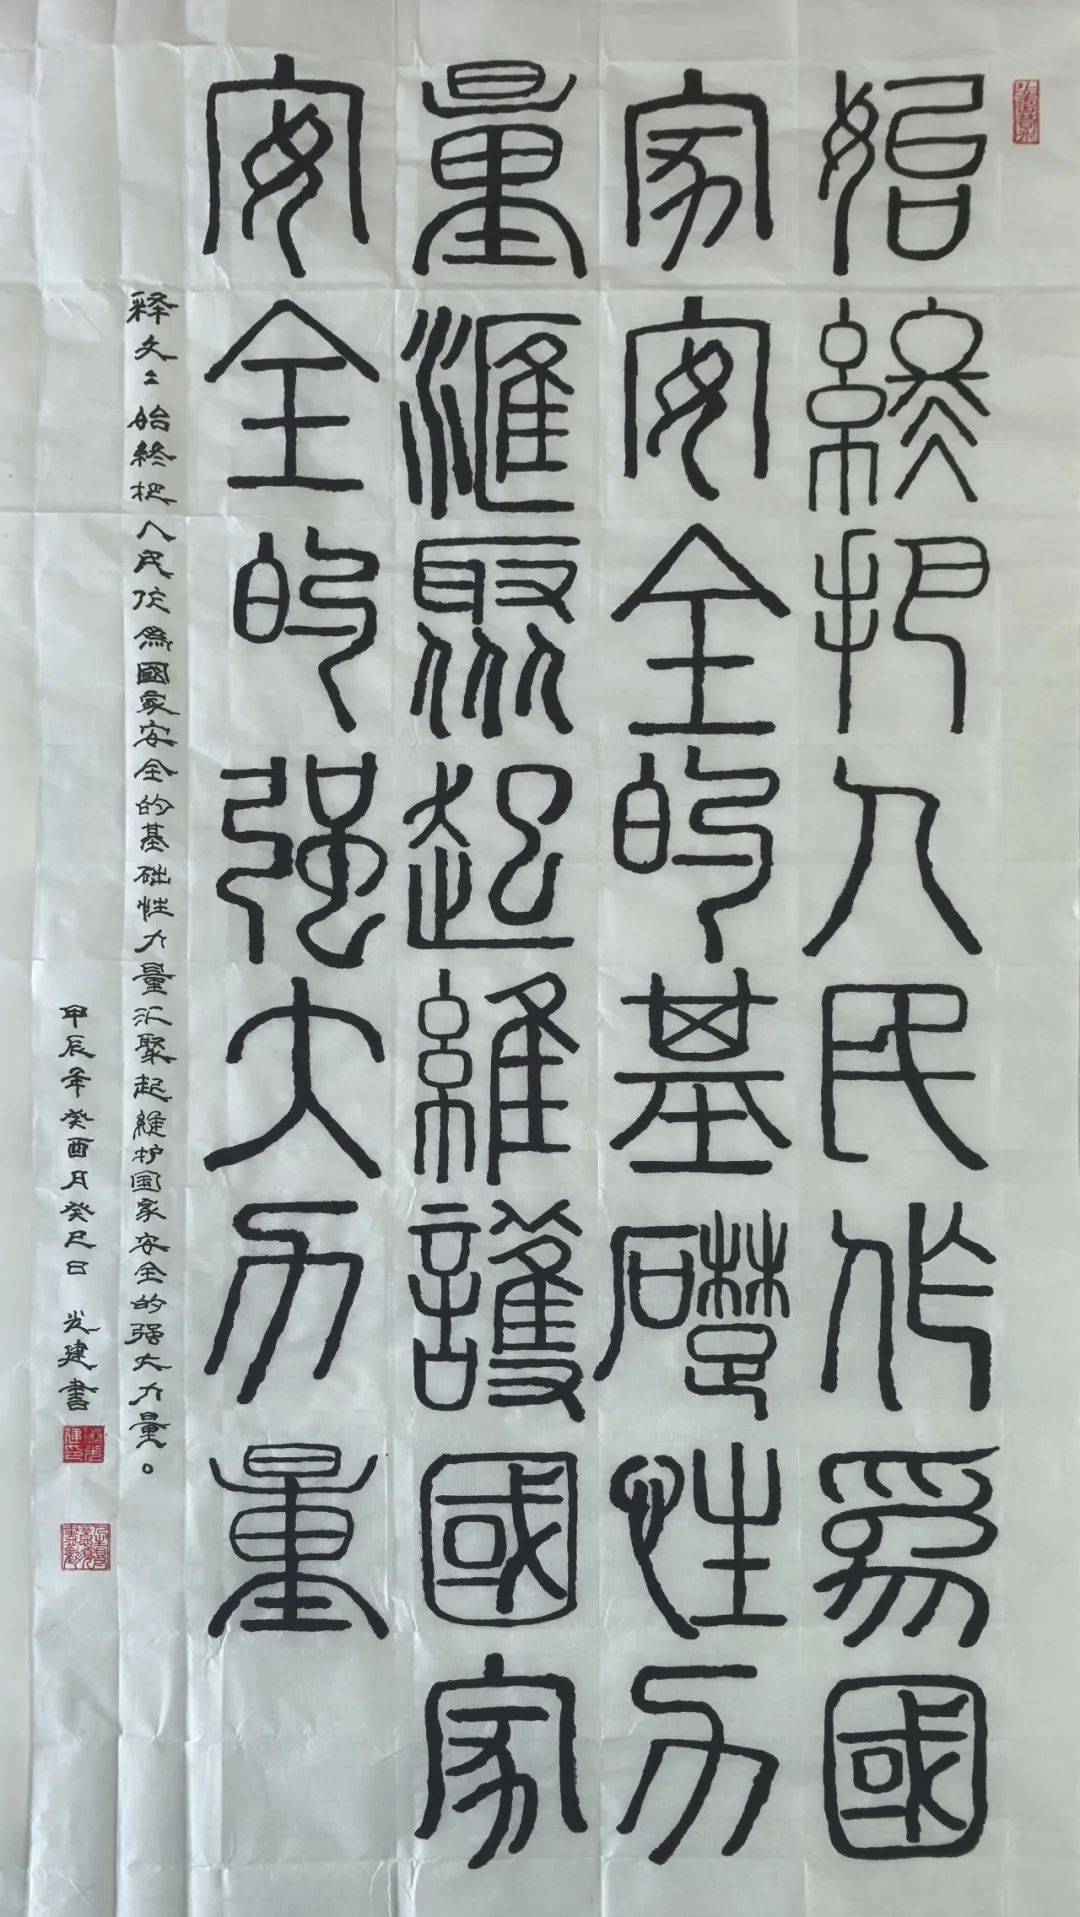 始終把人民作為國
家安全的基礎性力
量滙聚起維護國家
安全的强大力量
释文：始終把人民作為國家安全的基础性力量汇聚起維护国家安全的强大力量。
甲辰年癸酉月癸巳日 发建書